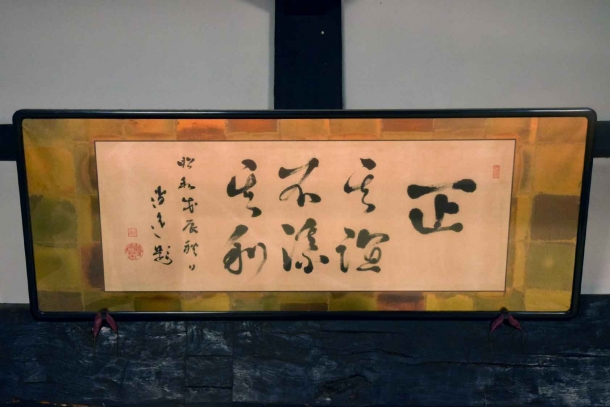 正
其誼
不謀
其利
昭和戊辰秋日
題